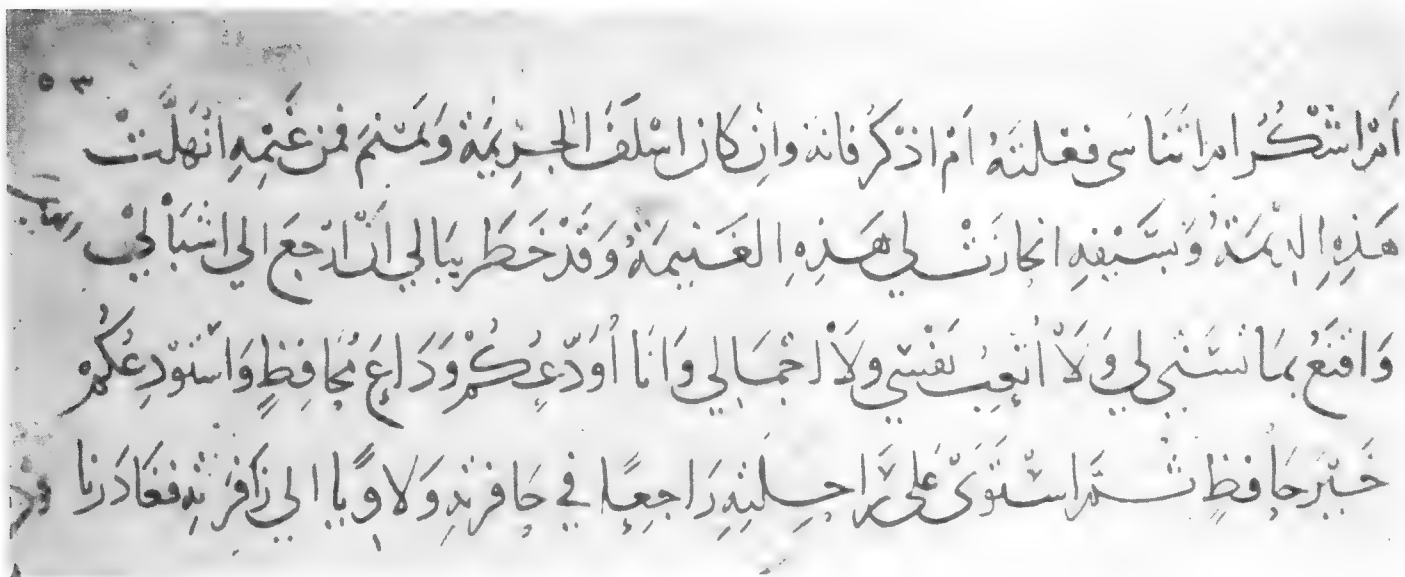 ٥٣
أَمْ اشْكُرُ امرا تَنَاسَى فعْلَتَهُ أَمْ اذْكُرُ فانه وَاِنْ كانَ اسْلَفَ الجَرِيمَةَ وَنَمْنَمَ فمن غَيْمِهِ انْهَلَّتْ
هَذِهِ الدِّيمَةُ وَبِسَيْفِهِ انحازَتْ لي هَذِهِ الغَنِيمَةُ وَقَدْ خَطَرَ بِبَالي أَنْ ارْجِعَ الي اشْبَالي
وَاقْنَعُ بمَا تَسَنَّى لي وَلَا أُتْعِبَ نَفْسِي وَلَا اجْمَالي وَانَا أُوَدِّعُكُمْ وَدَاعَ مُحَافِظٍ وَاسْتَوْدِعُكُمْ
خَيْرَ حَافِظٍ ثُمَّ اسْتَوَى عَلى رَاحِلَتِهِ رَاجِعًا فِي حَافِرَتِهِ وَلَاوِيًا الي زَافِرَتِهِ فغَادَرَنا